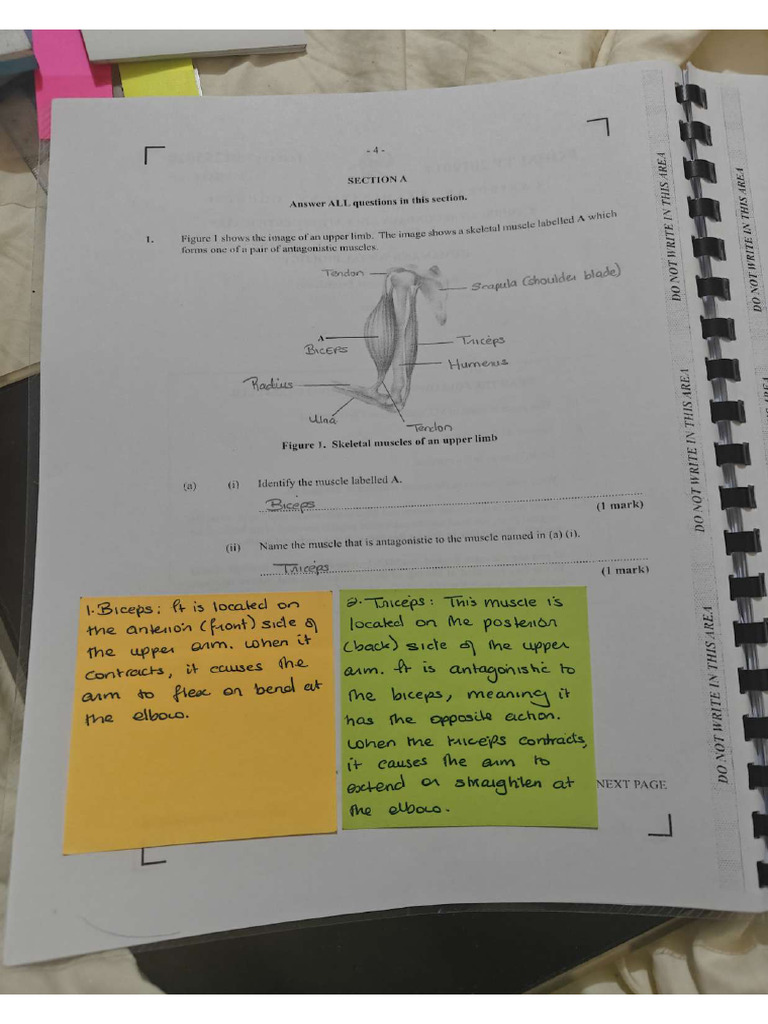 - 4 -
SECTION A
Answer ALL questions in this section.
1. Figure 1 shows the image of an upper limb. The image shows a skeletal muscle labelled A which
forms one of a pair of antagonistic muscles.
Tendon
Scapula (shoulder blade)
A
BICEPS
Triceps
Humerus
Radius
Ulna
Tendon
Figure 1. Skeletal muscles of an upper limb
(a) (i) Identify the muscle labelled A.
Biceps
(1 mark)
(ii) Name the muscle that is antagonistic to the muscle named in (a) (i).
Triceps
(1 mark)
1. Biceps: It is located on
the anterior (front) side of
the upper arm. When it
contracts, it causes the
arm to flex or bend at
the elbow.
2. Triceps: This muscle is
located on the posterior
(back) side of the upper
arm. It is antagonistic to
the biceps, meaning it
has the opposite action.
When the triceps contracts,
it causes the arm to
extend or straighten at
the elbow.
NEXT PAGE
DO NOT WRITE IN THIS AREA
DO NOT WRITE IN THIS AREA
DO NOT WRITE IN THIS AREA
DO NOT WRITE IN THIS AREA